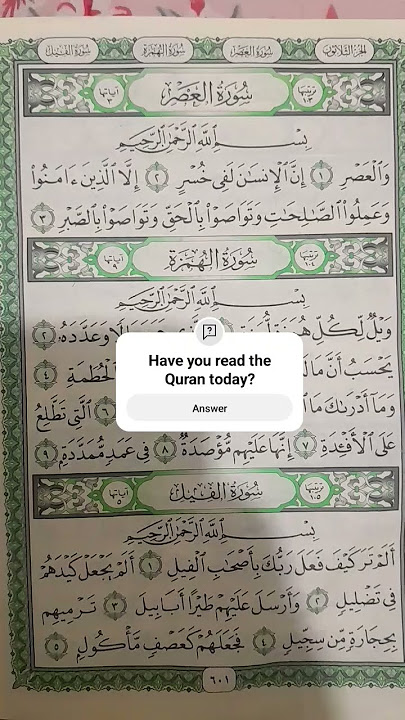 الجزء الثلاثون
سورة العصر
سورة الهمزة
سورة الفيل
ترتيبها ١٠٣
سُورَةُ الْعَصْرِ
آياتها ٣
بِسْمِ اللَّهِ الرَّحْمَٰنِ الرَّحِيمِ
وَالْعَصْرِ ١ إِنَّ الْإِنسَانَ لَفِى خُسْرٍ ٢ إِلَّا الَّذِينَ ءَامَنُوا
وَعَمِلُوا الصَّالِحَاتِ وَتَوَاصَوْا بِالْحَقِّ وَتَوَاصَوْا بِالصَّبْرِ ٣
ترتيبها ١٠٤
سُورَةُ الْهُمَزَةِ
آياتها ٩
بِسْمِ اللَّهِ الرَّحْمَٰنِ الرَّحِيمِ
وَيْلٌ لِّكُلِّ هُمَزَةٍ وَعَدَّدَهُ ٢
يَحْسَبُ أَنَّ الْحُطَمَةِ ٤
وَمَا أَدْرَىٰكَ مَا ٦ الَّتِى تَطَّلِعُ
عَلَى الْأَفْـِٔدَةِ ٧ إِنَّهَا عَلَيْهِم مُّؤْصَدَةٌ ٨ فِى عَمَدٍ مُّمَدَّدَةٍ ٩
Have you read the
Quran today?
Answer
ترتيبها ١٠٥
سُورَةُ الْفِيلِ
آياتها ٥
بِسْمِ اللَّهِ الرَّحْمَٰنِ الرَّحِيمِ
أَلَمْ تَرَ كَيْفَ فَعَلَ رَبُّكَ بِأَصْحَابِ الْفِيلِ ١ أَلَمْ يَجْعَلْ كَيْدَهُمْ
فِى تَضْلِيلٍ ٢ وَأَرْسَلَ عَلَيْهِمْ طَيْرًا أَبَابِيلَ ٣ تَرْمِيهِم
بِحِجَارَةٍ مِّن سِجِّيلٍ ٤ فَجَعَلَهُمْ كَعَصْفٍ مَّأْكُولٍ ٥
٦٠١